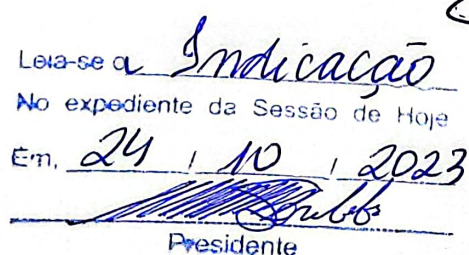 Leia-se a Indicacção
No expediente da Sessão de Hoje
Em, 24 / 10 / 2023
Presidente